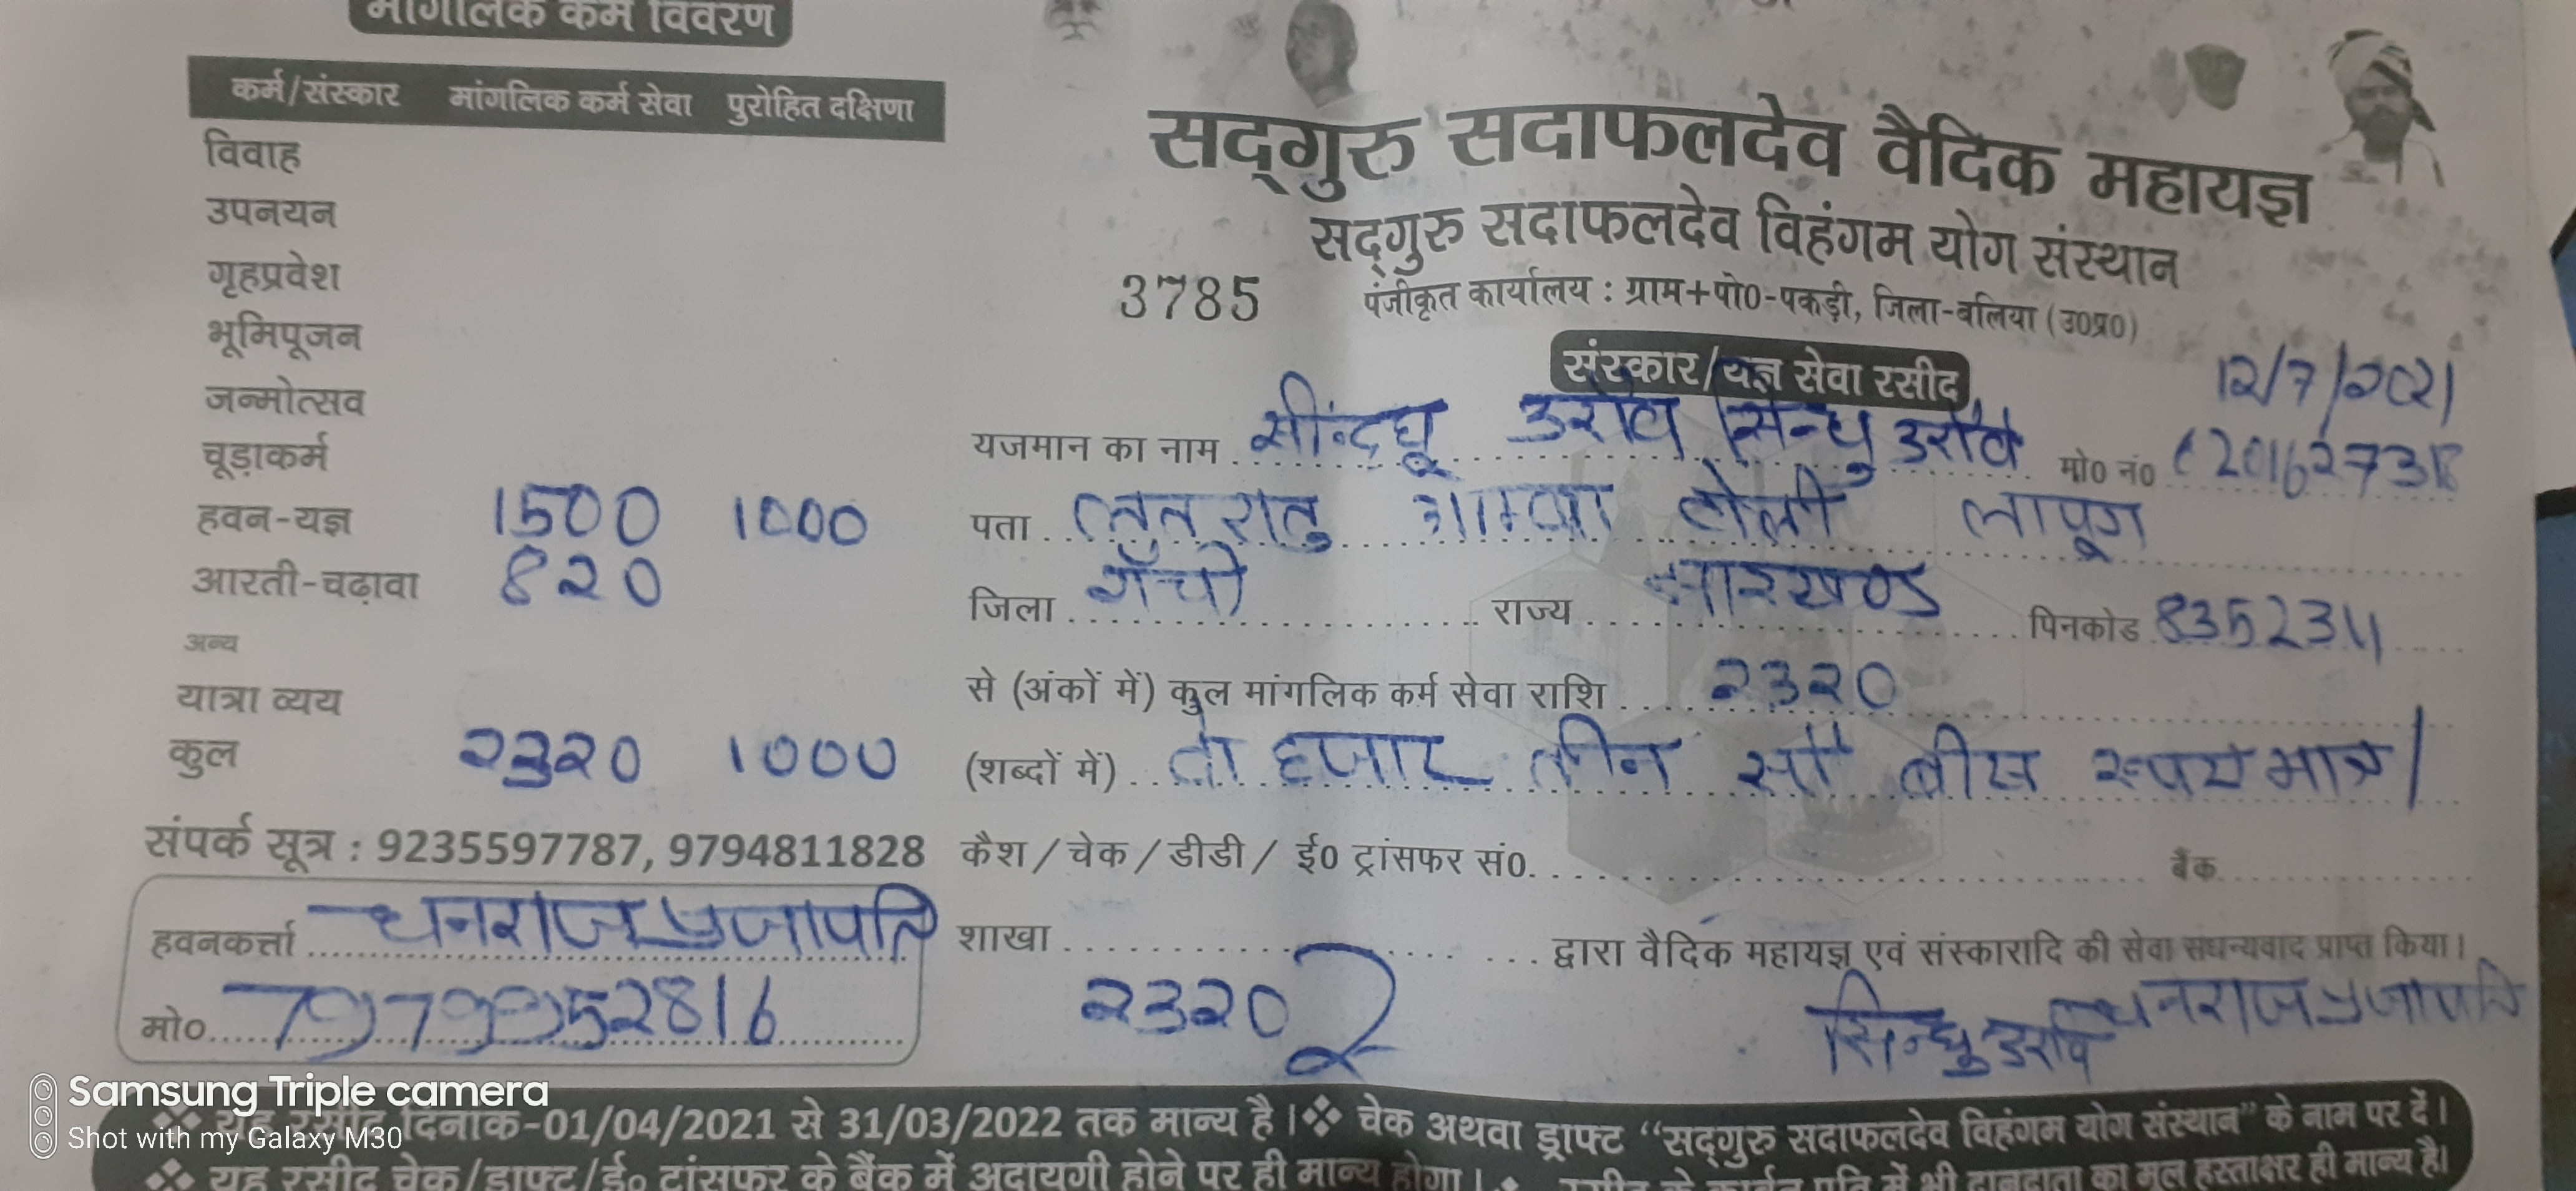 मांगलिक कर्म विवरण
कर्म/संस्कार मांगलिक कर्म सेवा पुरोहित दक्षिणा
विवाह
उपनयन
गृहप्रवेश
भूमिपूजन
जन्मोत्सव
चूड़ाकर्म
हवन-यज्ञ 1500 1000
आरती-चढ़ावा 820
अन्य
यात्रा व्यय
कुल 2320 1000
संपर्क सूत्र : 9235597787, 9794811828
हवनकर्त्ता धनराज प्रजापति
मो०
सद्गुरु सदाफलदेव वैदिक महायज्ञ
सद्गुरु सदाफलदेव विहंगम योग संस्थान
3785 पंजीकृत कार्यालय : ग्राम+पो0-पकड़ी, जिला-बलिया (उ0प्र0)
संस्कार/यज्ञ सेवा रसीद 12/7/2021
यजमान का नाम सीन्दघू उराँव सिन्धु उराँव मो० नं०
पता टोली लापूग
जिला राँची राज्य झारखण्ड पिनकोड
से (अंकों में) कुल मांगलिक कर्म सेवा राशि 2320
(शब्दों में) दो हजार तीन सौ बीस रूपय मात्र।
कैश / चेक / डीडी / ई0 ट्रांसफर सं0. बैंक
शाखा द्वारा वैदिक महायज्ञ एवं संस्कारादि की सेवा सधन्यवाद प्राप्त किया।
2320 सिन्धु उराँव धनराज प्रजापति
❖ यह रसीद दिनांक-01/04/2021 से 31/03/2022 तक मान्य है। ❖ चेक अथवा ड्राफ्ट “सद्गुरु सदाफलदेव विहंगम योग संस्थान” के नाम पर दें।
❖ यह रसीद चेक/ड्राफ्ट/ई० ट्रांसफर के बैंक में अदायगी होने पर ही मान्य होगा। में भी दानदाता का मूल हस्ताक्षर ही मान्य है।
Samsung Triple camera
Shot with my Galaxy M30